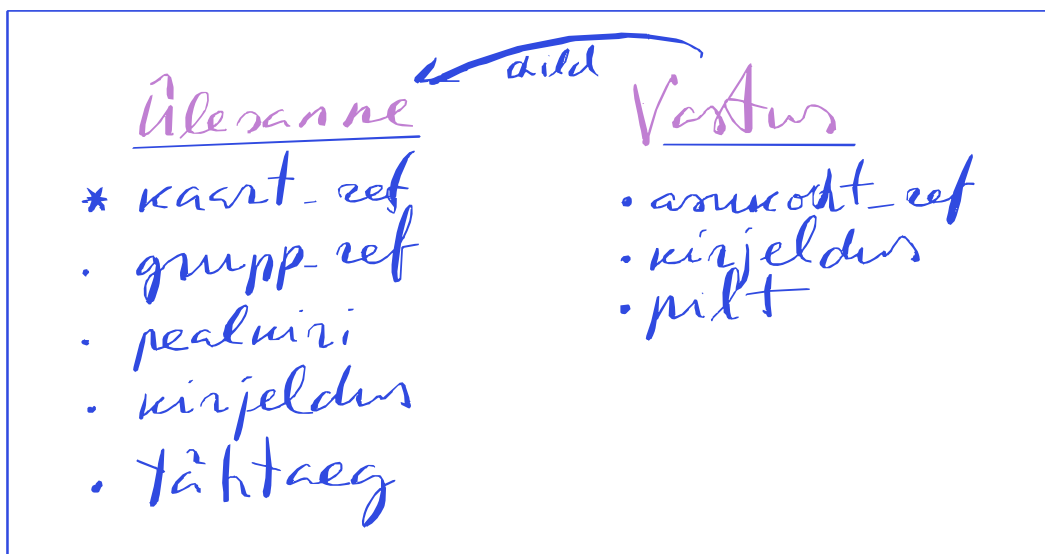 child
Ülesanne
* kaart_ref
• grupp_ref
• pealkiri
• kirjeldus
• tähtaeg
Vastus
• asukoht_ref
• kirjeldus
• pilt